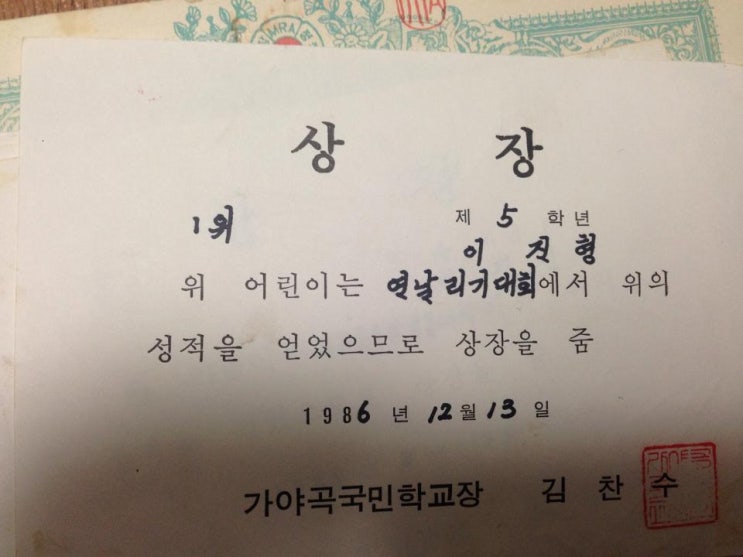 상 장
1위
제 5 학년
이 진 형
위 어린이는 연날리기대회에서 위의
성적을 얻었으므로 상장을 줌
1986 년 12월 13 일
가야곡국민학교장 김 찬 수